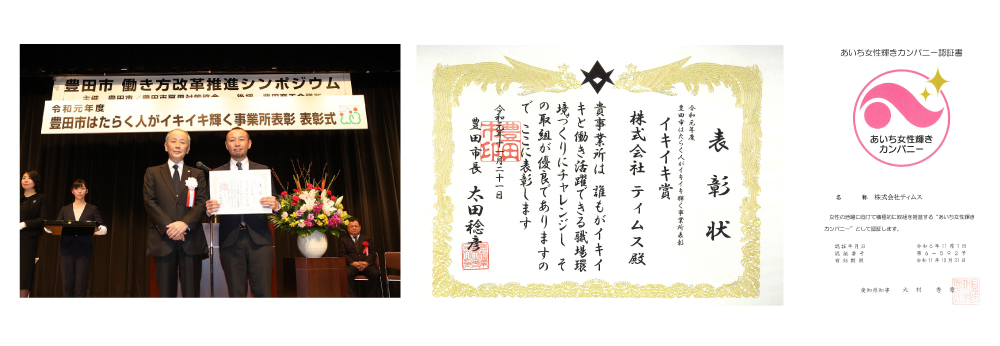 豊田市 働き方改革推進シンポジウム
令和元年度
豊田市はたらく人がイキイキ輝く事業所表彰 表彰式
表彰状
令和元年度
豊田市はたらく人がイキイキ輝く事業所表彰
イキイキ賞
株式会社 ティムス 殿
貴事業所は 誰もがイキイ
キと働き活躍できる職場環
境づくりにチャレンジし そ
の取組が優良でありますの
で ここに表彰します
令和元年十一月二十一日
豊田市長 太田稔彦
あいち女性輝きカンパニー認証書
あいち女性輝き
カンパニー
名 称 株式会社ティムス
女性の活躍に向けて積極的に取組を推進する“あいち女性輝き
カンパニー”として認証します。
認証年月日 令和6年11月1日
認証番号 第6-592号
有効期限 令和11年10月31日
愛知県知事 大村 秀章